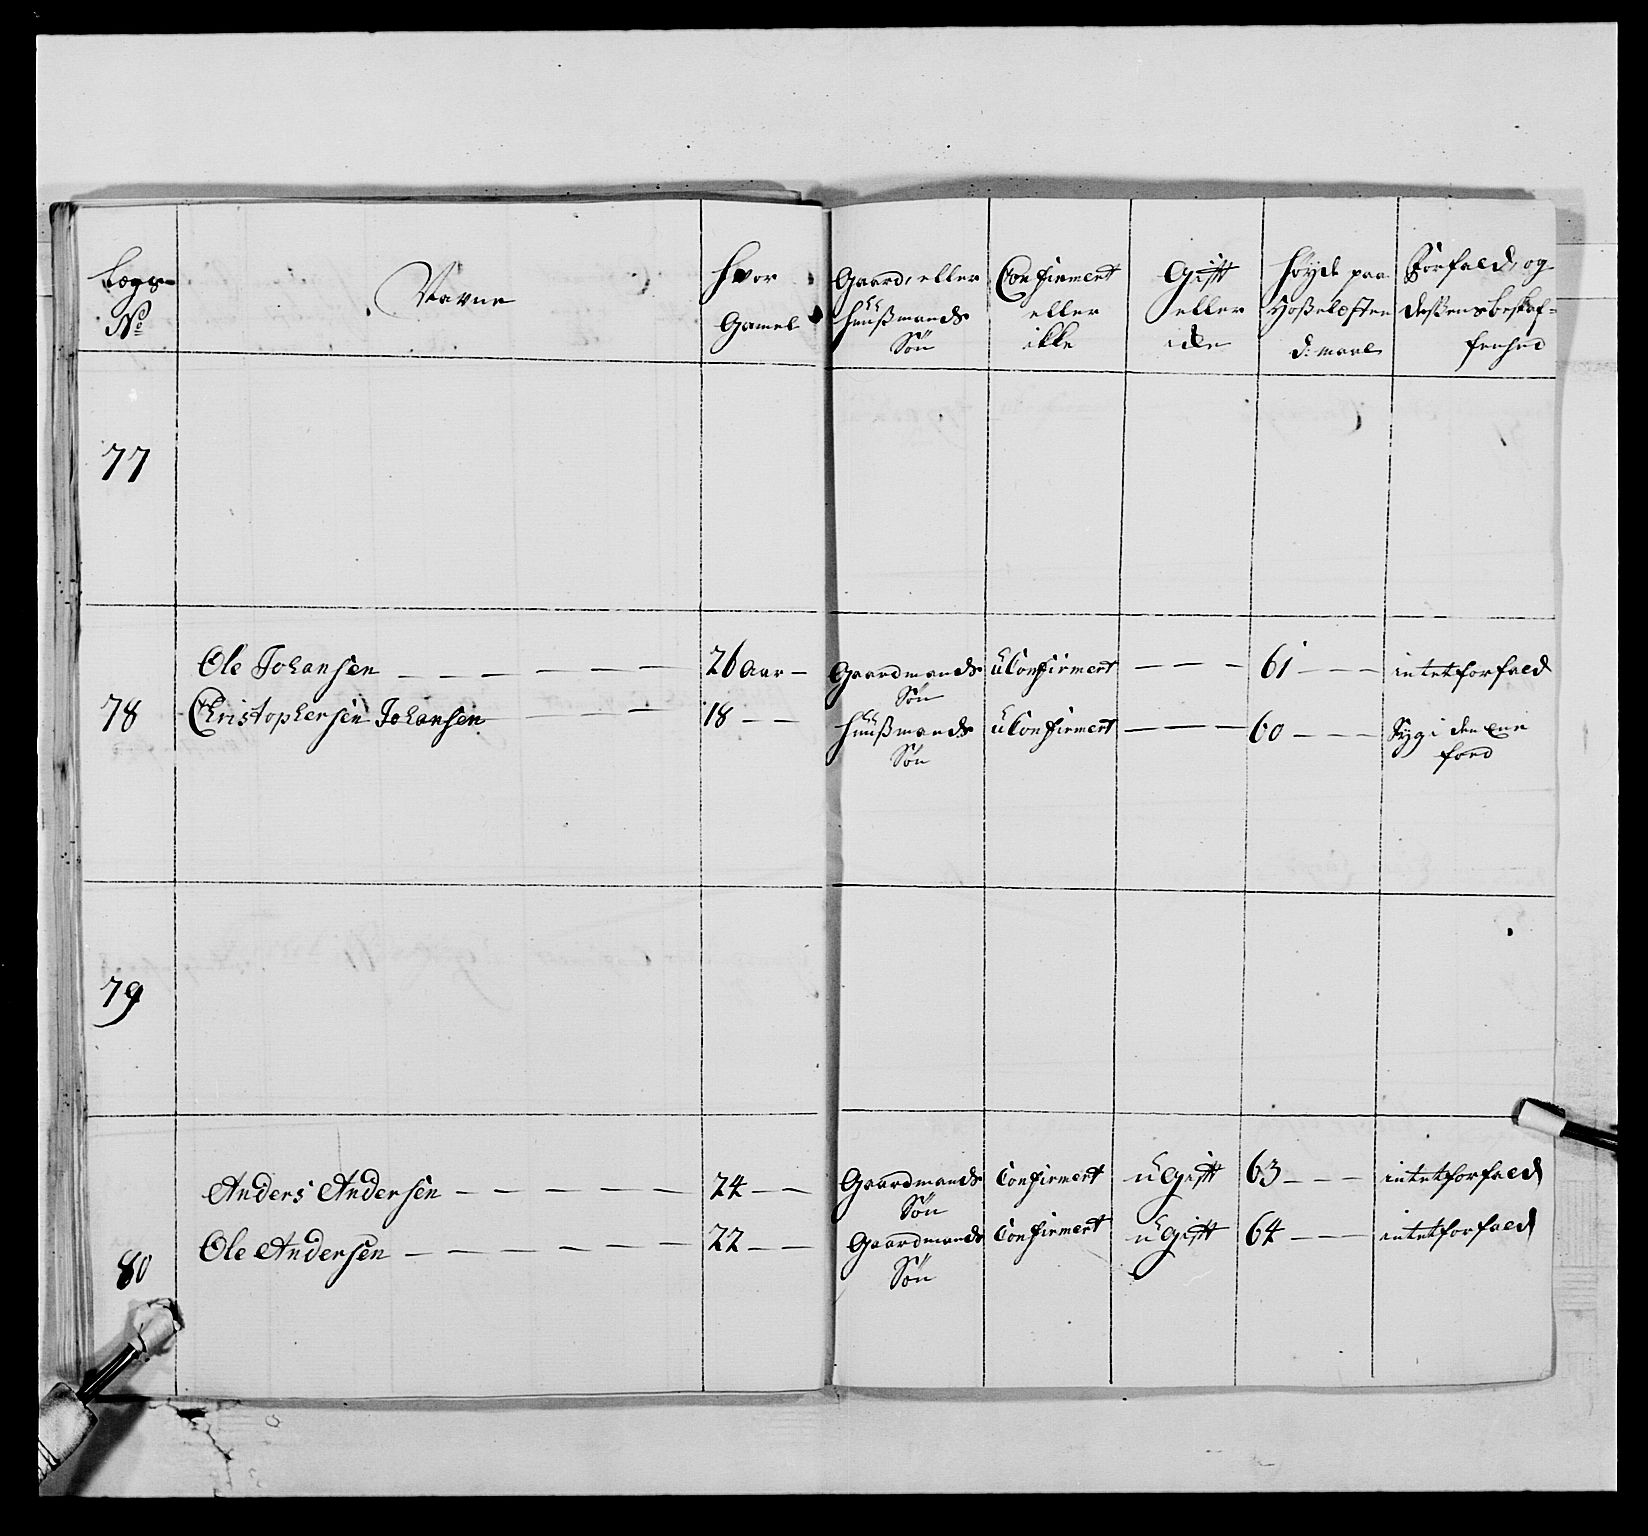 Lægs
No
Navne
Hvor
Gamel
Gaard, eller
Huusmands
Søn
Confirmert
eller
ikke
Gift
eller
ide
Høyde paa
Hoßeløften
d: maal
Forfald, og
deßens beskaf-
fenhed
77
78
Ole Johansen 26 Aar Gaardmands Søn uConfirmert 61 intet forfald
Christophersen Johansen 18 Huusmands Søn uConfirmert 60 Syg i den Ene
79
80
Anders Andersen 24 Gaardmands Søn Confirmert uGift 63 intet forfald
Ole Andersen 22 Gaardmands Søn Confirmert uGift 64 intet forfald